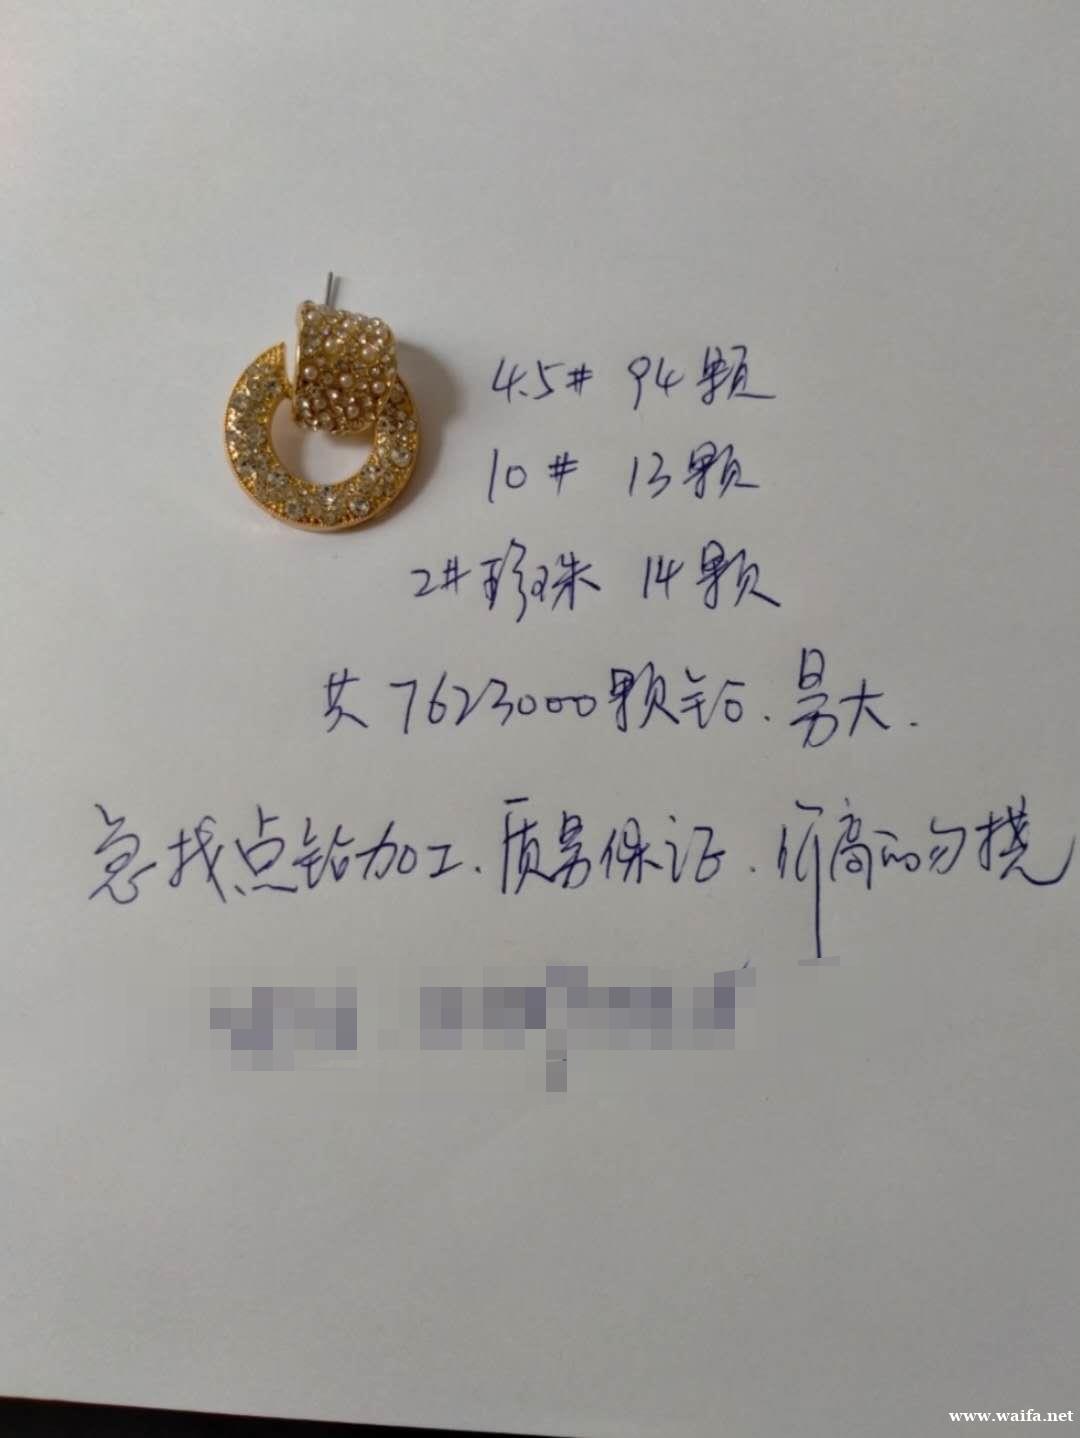 4.5# 94颗
10# 13颗
2#珍珠 14颗
共7623000颗钻.量大.
急找点钻加工.质量保证.价高的勿扰
www.waifa.net